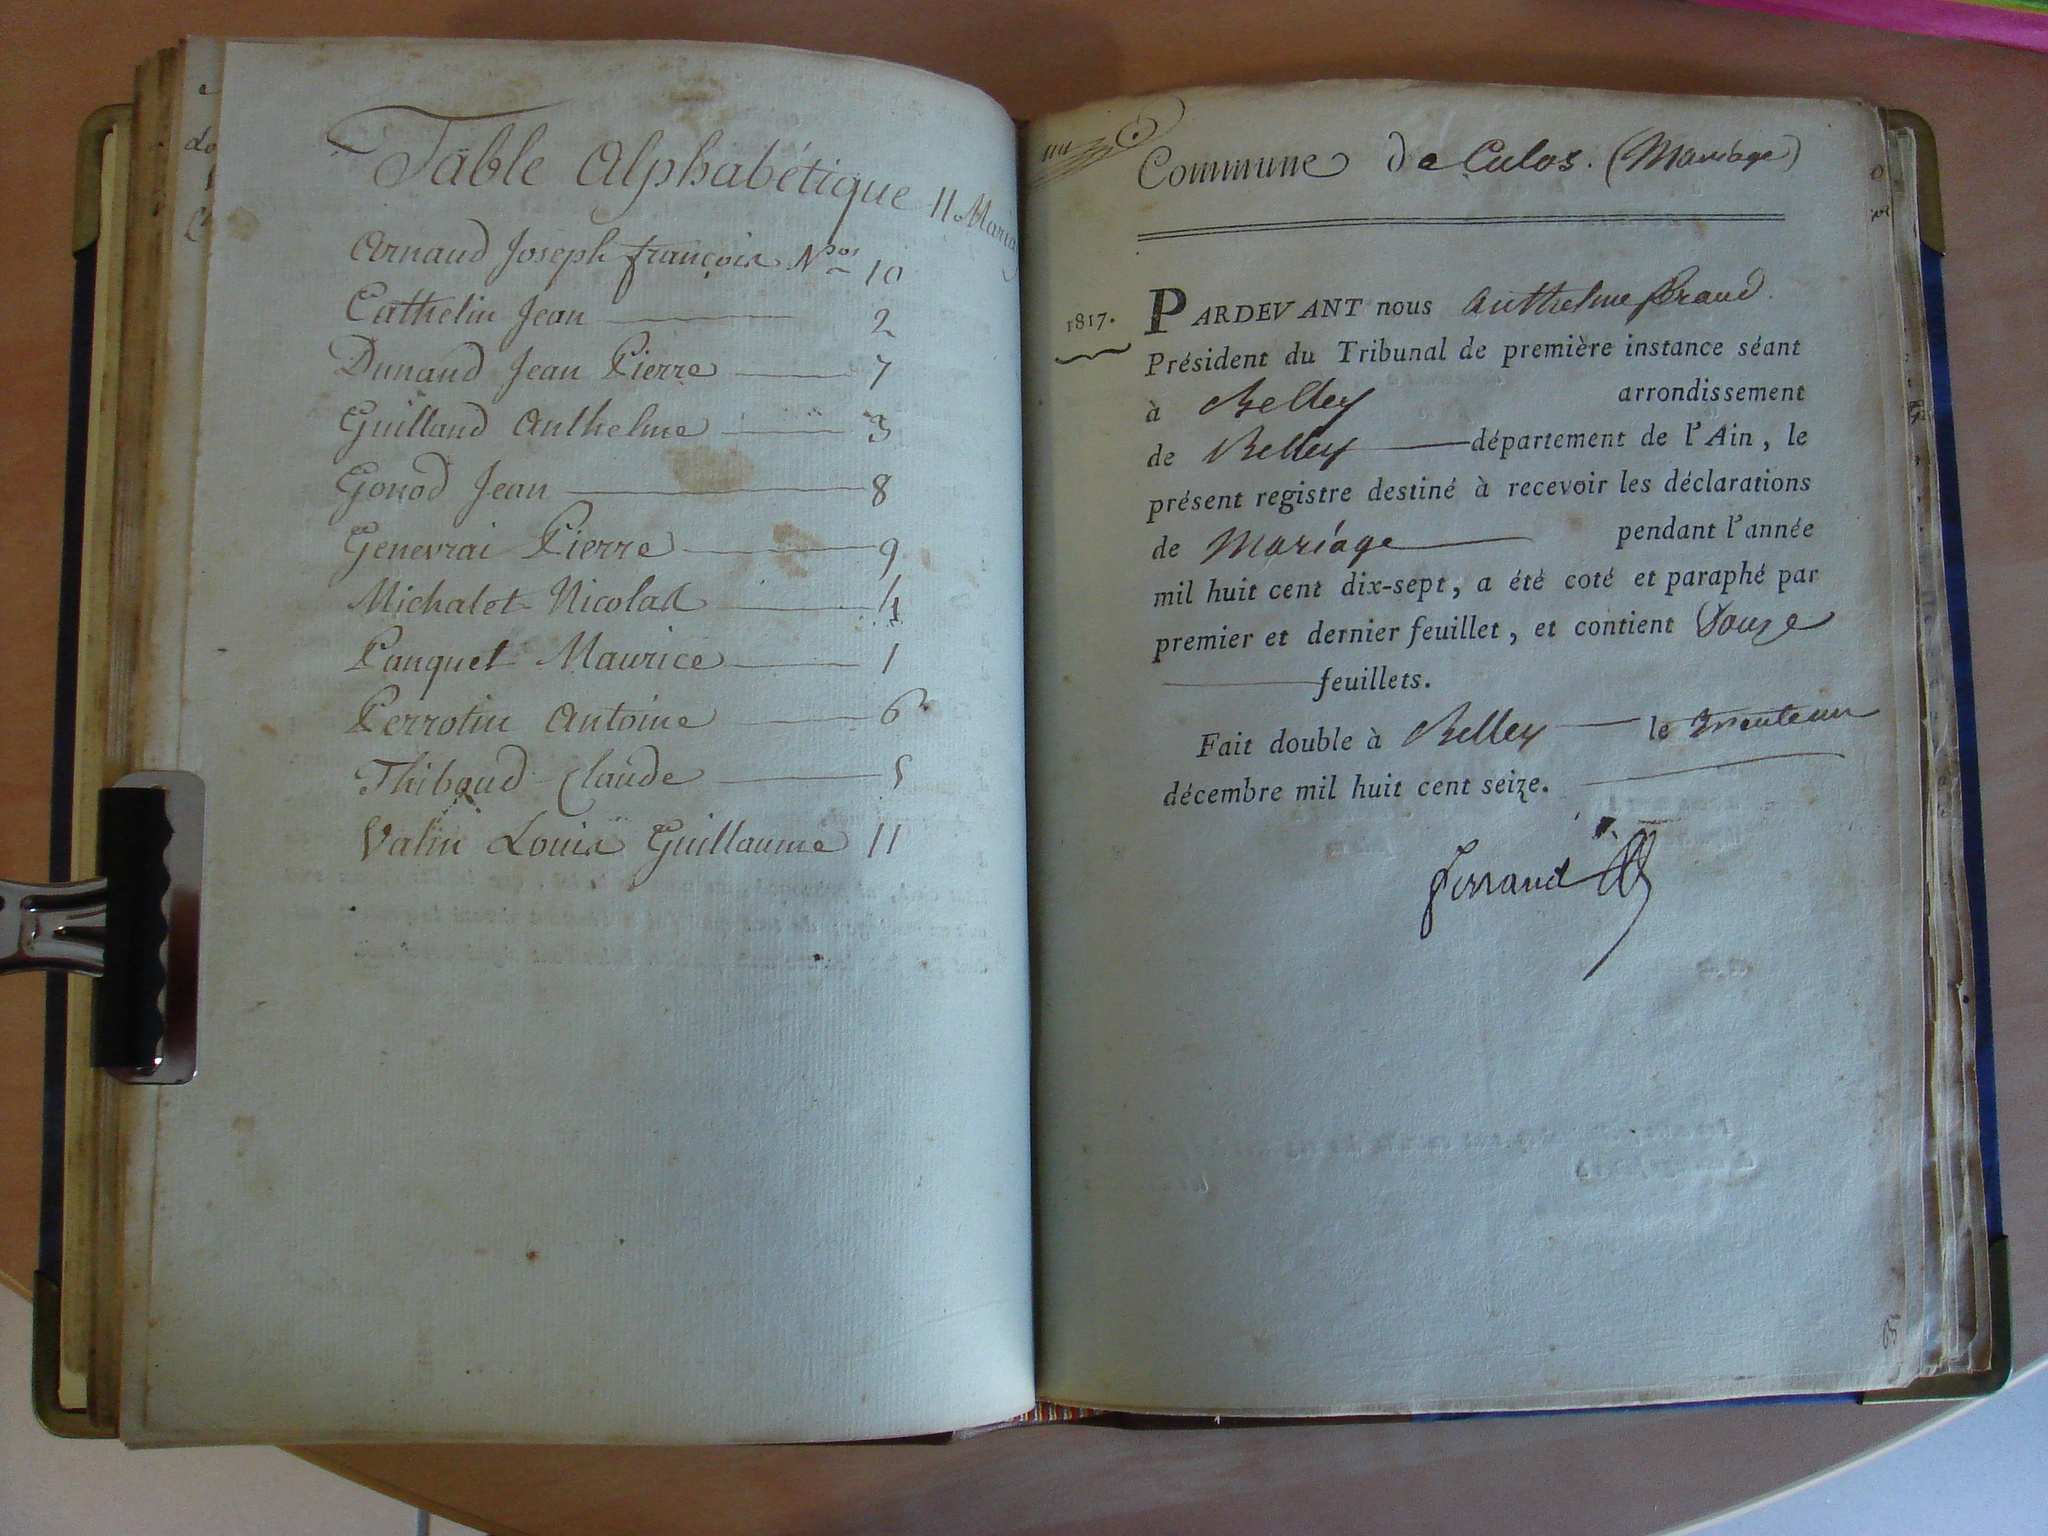 Table Alphabétique 11. Mariag
Arnaud Joseph françois Nos 10
Cathelin Jean 2
Dunand Jean Pierre 7
Guilland Anthelme 3
Gonod Jean 8
Genevrai Pierre 9
Michalet Nicolas 4
Panquet Maurice 1
Perrotin Antoine 6
Thibaud Claude 5
Valin Louis Guillaume 11
Commune de Culos. (Mariage)
1817.
PARDEVANT nous Anthelme
Président du Tribunal de première instance séant
à Belley arrondissement
de Belley département de l'Ain, le
présent registre destiné à recevoir les déclarations
de Mariage pendant l'année
mil huit cent dix-sept, a été coté et paraphé par
premier et dernier feuillet, et contient Douze
feuillets.
Fait double à Belley le trenteun
décembre mil huit cent seize.
ferrand